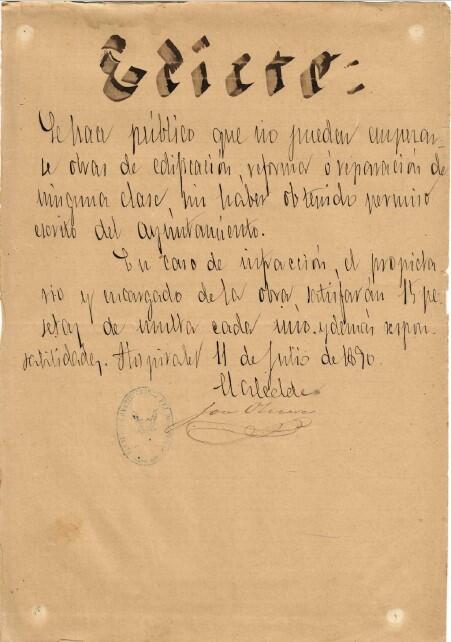 Edicto:
Se hace público que no pueden empezar-
se obras de edificación, reforma ó reparación de
ninguna clase sin haber obtenido permiso
escrito del ayuntamiento.
En caso de infracción, el propieta
rio y encargado de la obra satisfarán 15 pe
setas de multa cada uno y demás respon
sabilidades. Hospitalet 11 de Julio de 1890.
El alcalde